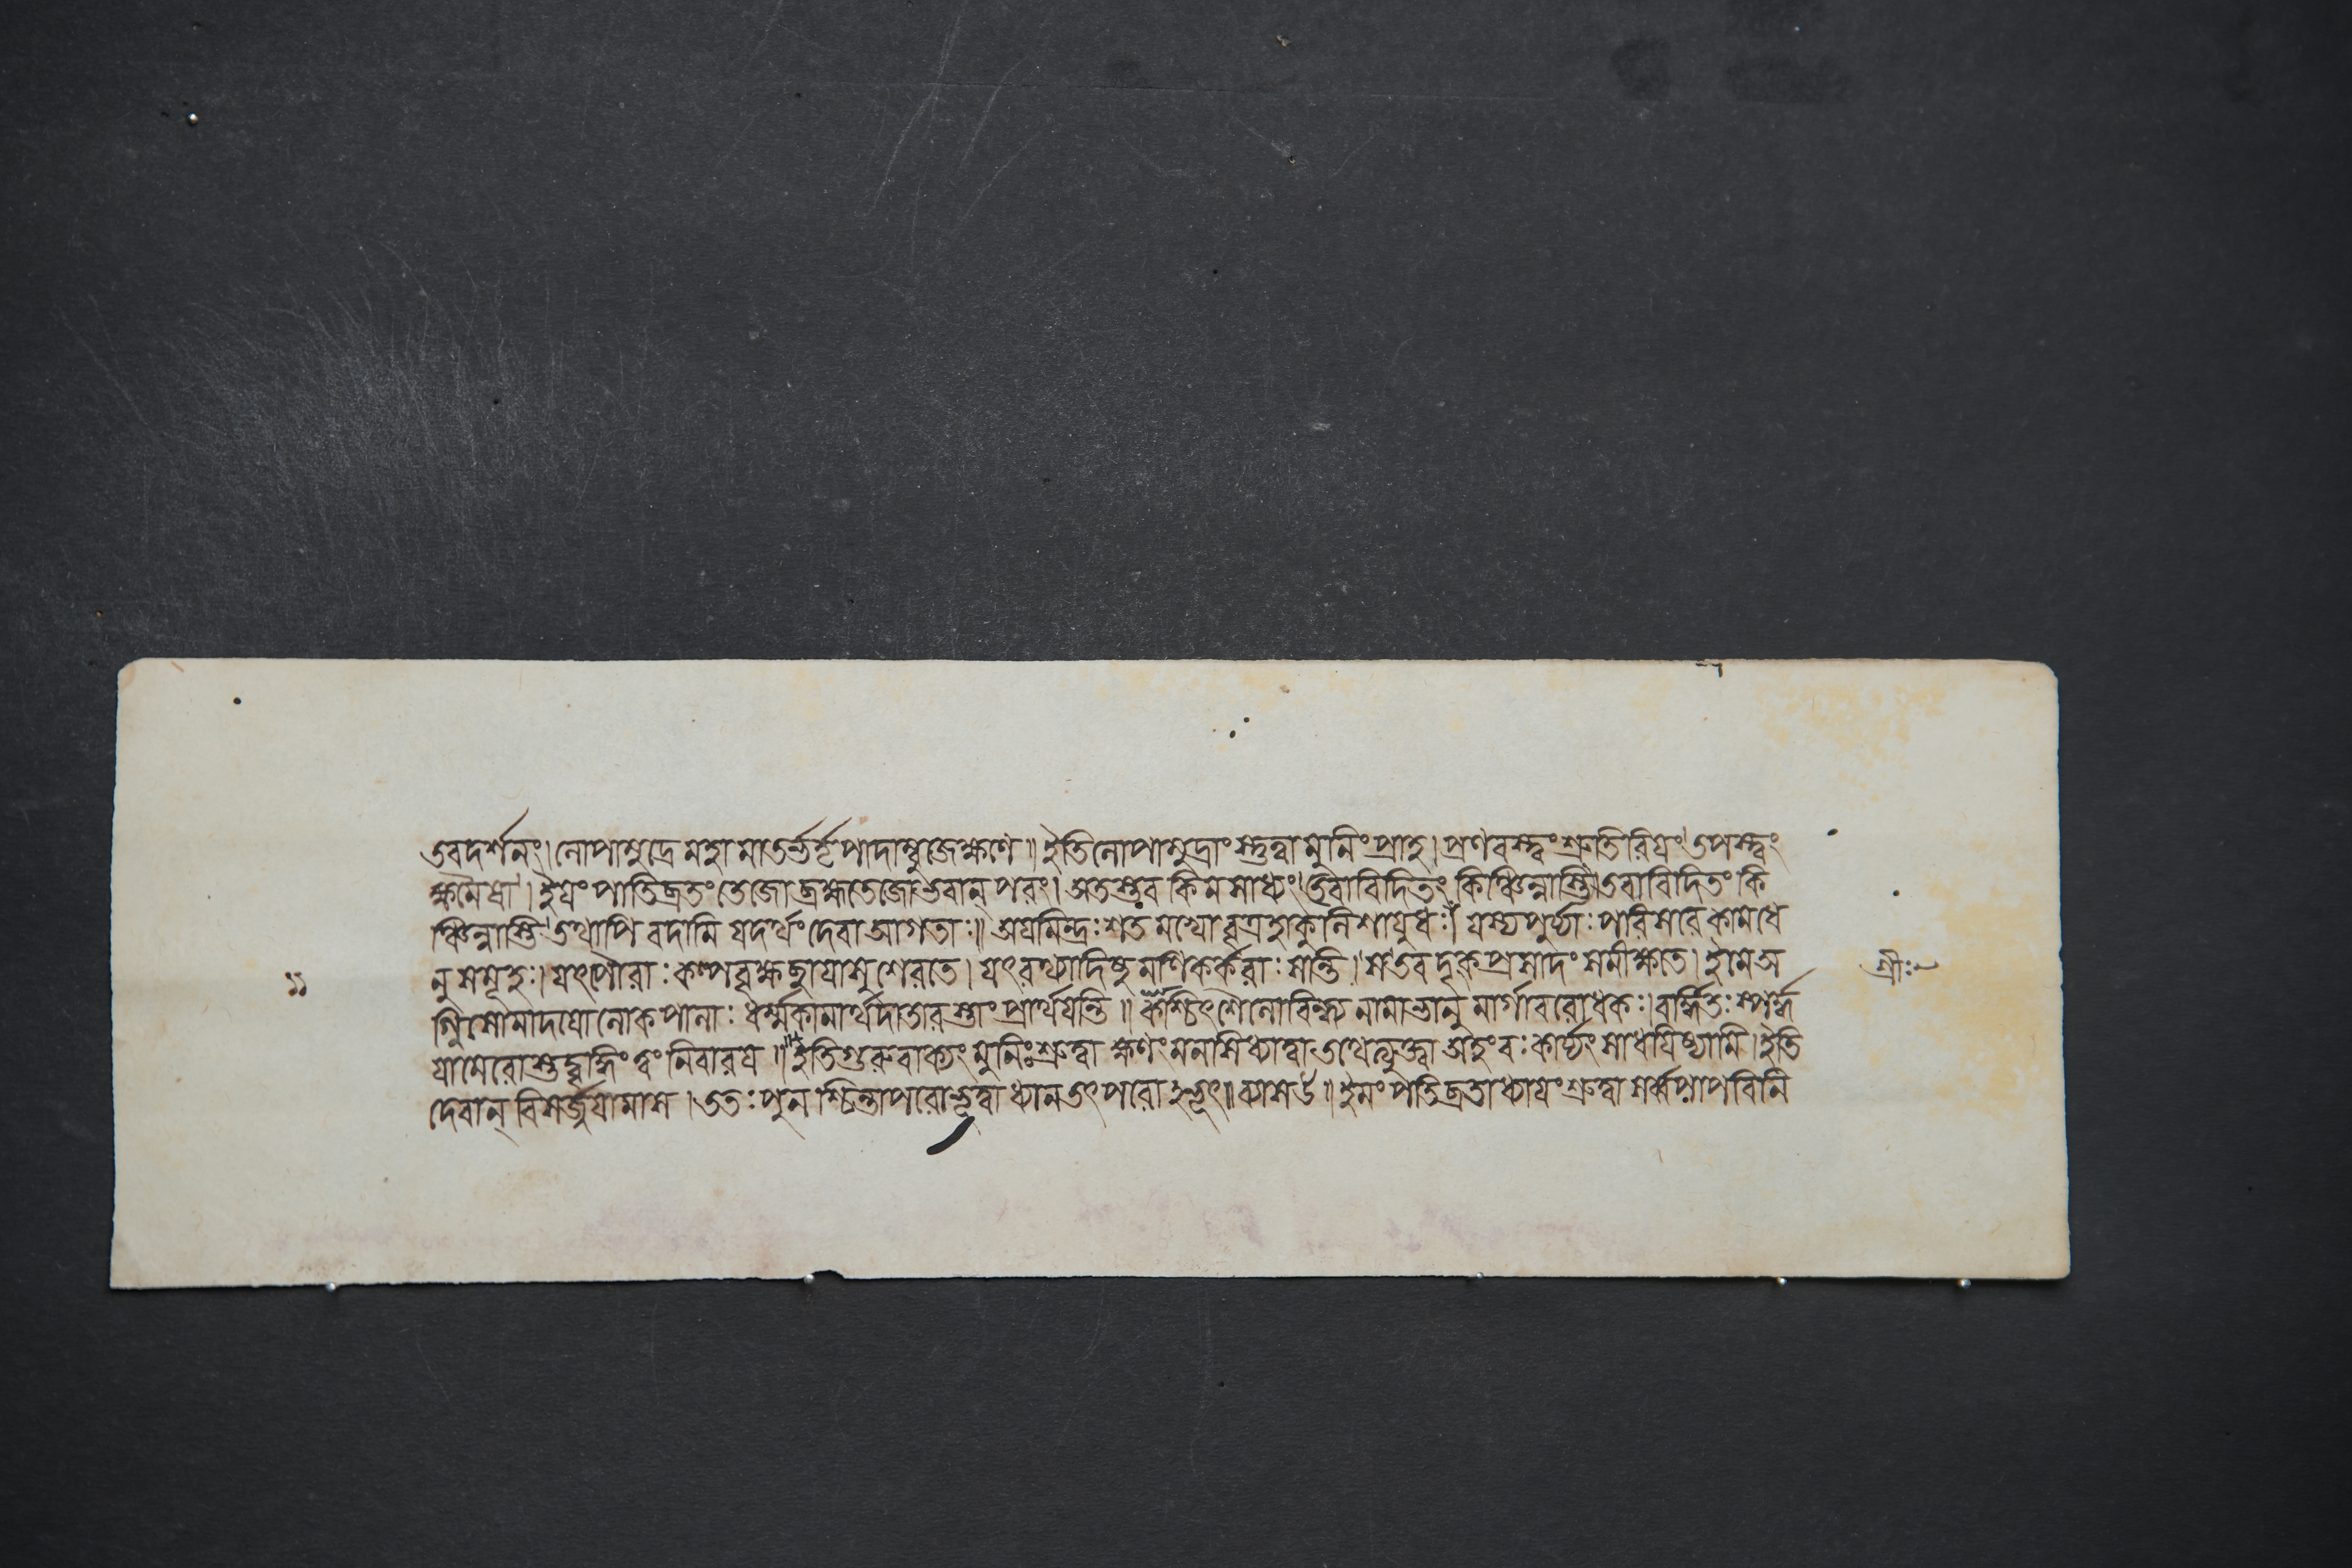 তবদর্শনং। লোপামুদ্রে মহামাতর্ভর্তৃপাদাম্বুজেক্ষণে॥ ইতি লোপামুদ্রাং স্তুত্বা মুনিং প্রাহ। প্রণবস্ত্বং শ্রুতিরিয়ং তপস্ত্বং
ক্ষমৈষা। ইয়ং পাতিব্রতং তেজো ব্রহ্মতেজো ভবান্ পরং। অতস্তব কিমসাধ্যং। তবাবিদিতং কিঞ্চিন্নাস্তি। তবাবিদিতং কি
ঞ্চিন্নাস্তি তথাপি বদামি যদর্থং দেবা আগতাঃ॥ অয়মিন্দ্রঃ শতমখো বৃত্রহা কুলিশায়ুধঃ। যস্য পুর্য্যাঃ পরিসরে কামধে
নু সমূহঃ। যৎপৌরাঃ কল্পবৃক্ষছায়াসু শেরতে। যৎ রথ্যাদিষু মণিকর্করাঃ সন্তি। স তব দৃক্প্রসাদং সমীক্ষতে। ইমে অ
১১
শ্রীঃ
গ্নিসোমাদয়ো লোকপালাঃ ধর্ম্মকামার্থদাতারস্ত্বাং প্রার্থয়ন্তি॥ কশ্চিৎ শৈলো বিন্ধ্য নামা ভানুমার্গাবরোধকঃ। বর্দ্ধিতঃ স্পর্দ্ধ
য়া মেরোস্তদ্বৃদ্ধিং ত্বং নিবারয়॥ ইতি গুরুবাক্যং মুনিঃ শ্রুত্বা ক্ষণং মনসি ধ্যাত্বা তথেত্যুক্ত্বা অহং বঃ কার্য্যং সাধয়িষ্যামি। ইতি
দেবান্ বিসর্জ্জয়ামাস। ততঃ পুনশ্চিন্তাপরো ভূত্বা ধ্যানতৎপরো ঽভূৎ॥ ব্যাস উ॥ ইমং পতিব্রতাধ্যায়ং শ্রুত্বা সর্ব্বপাপবিনি